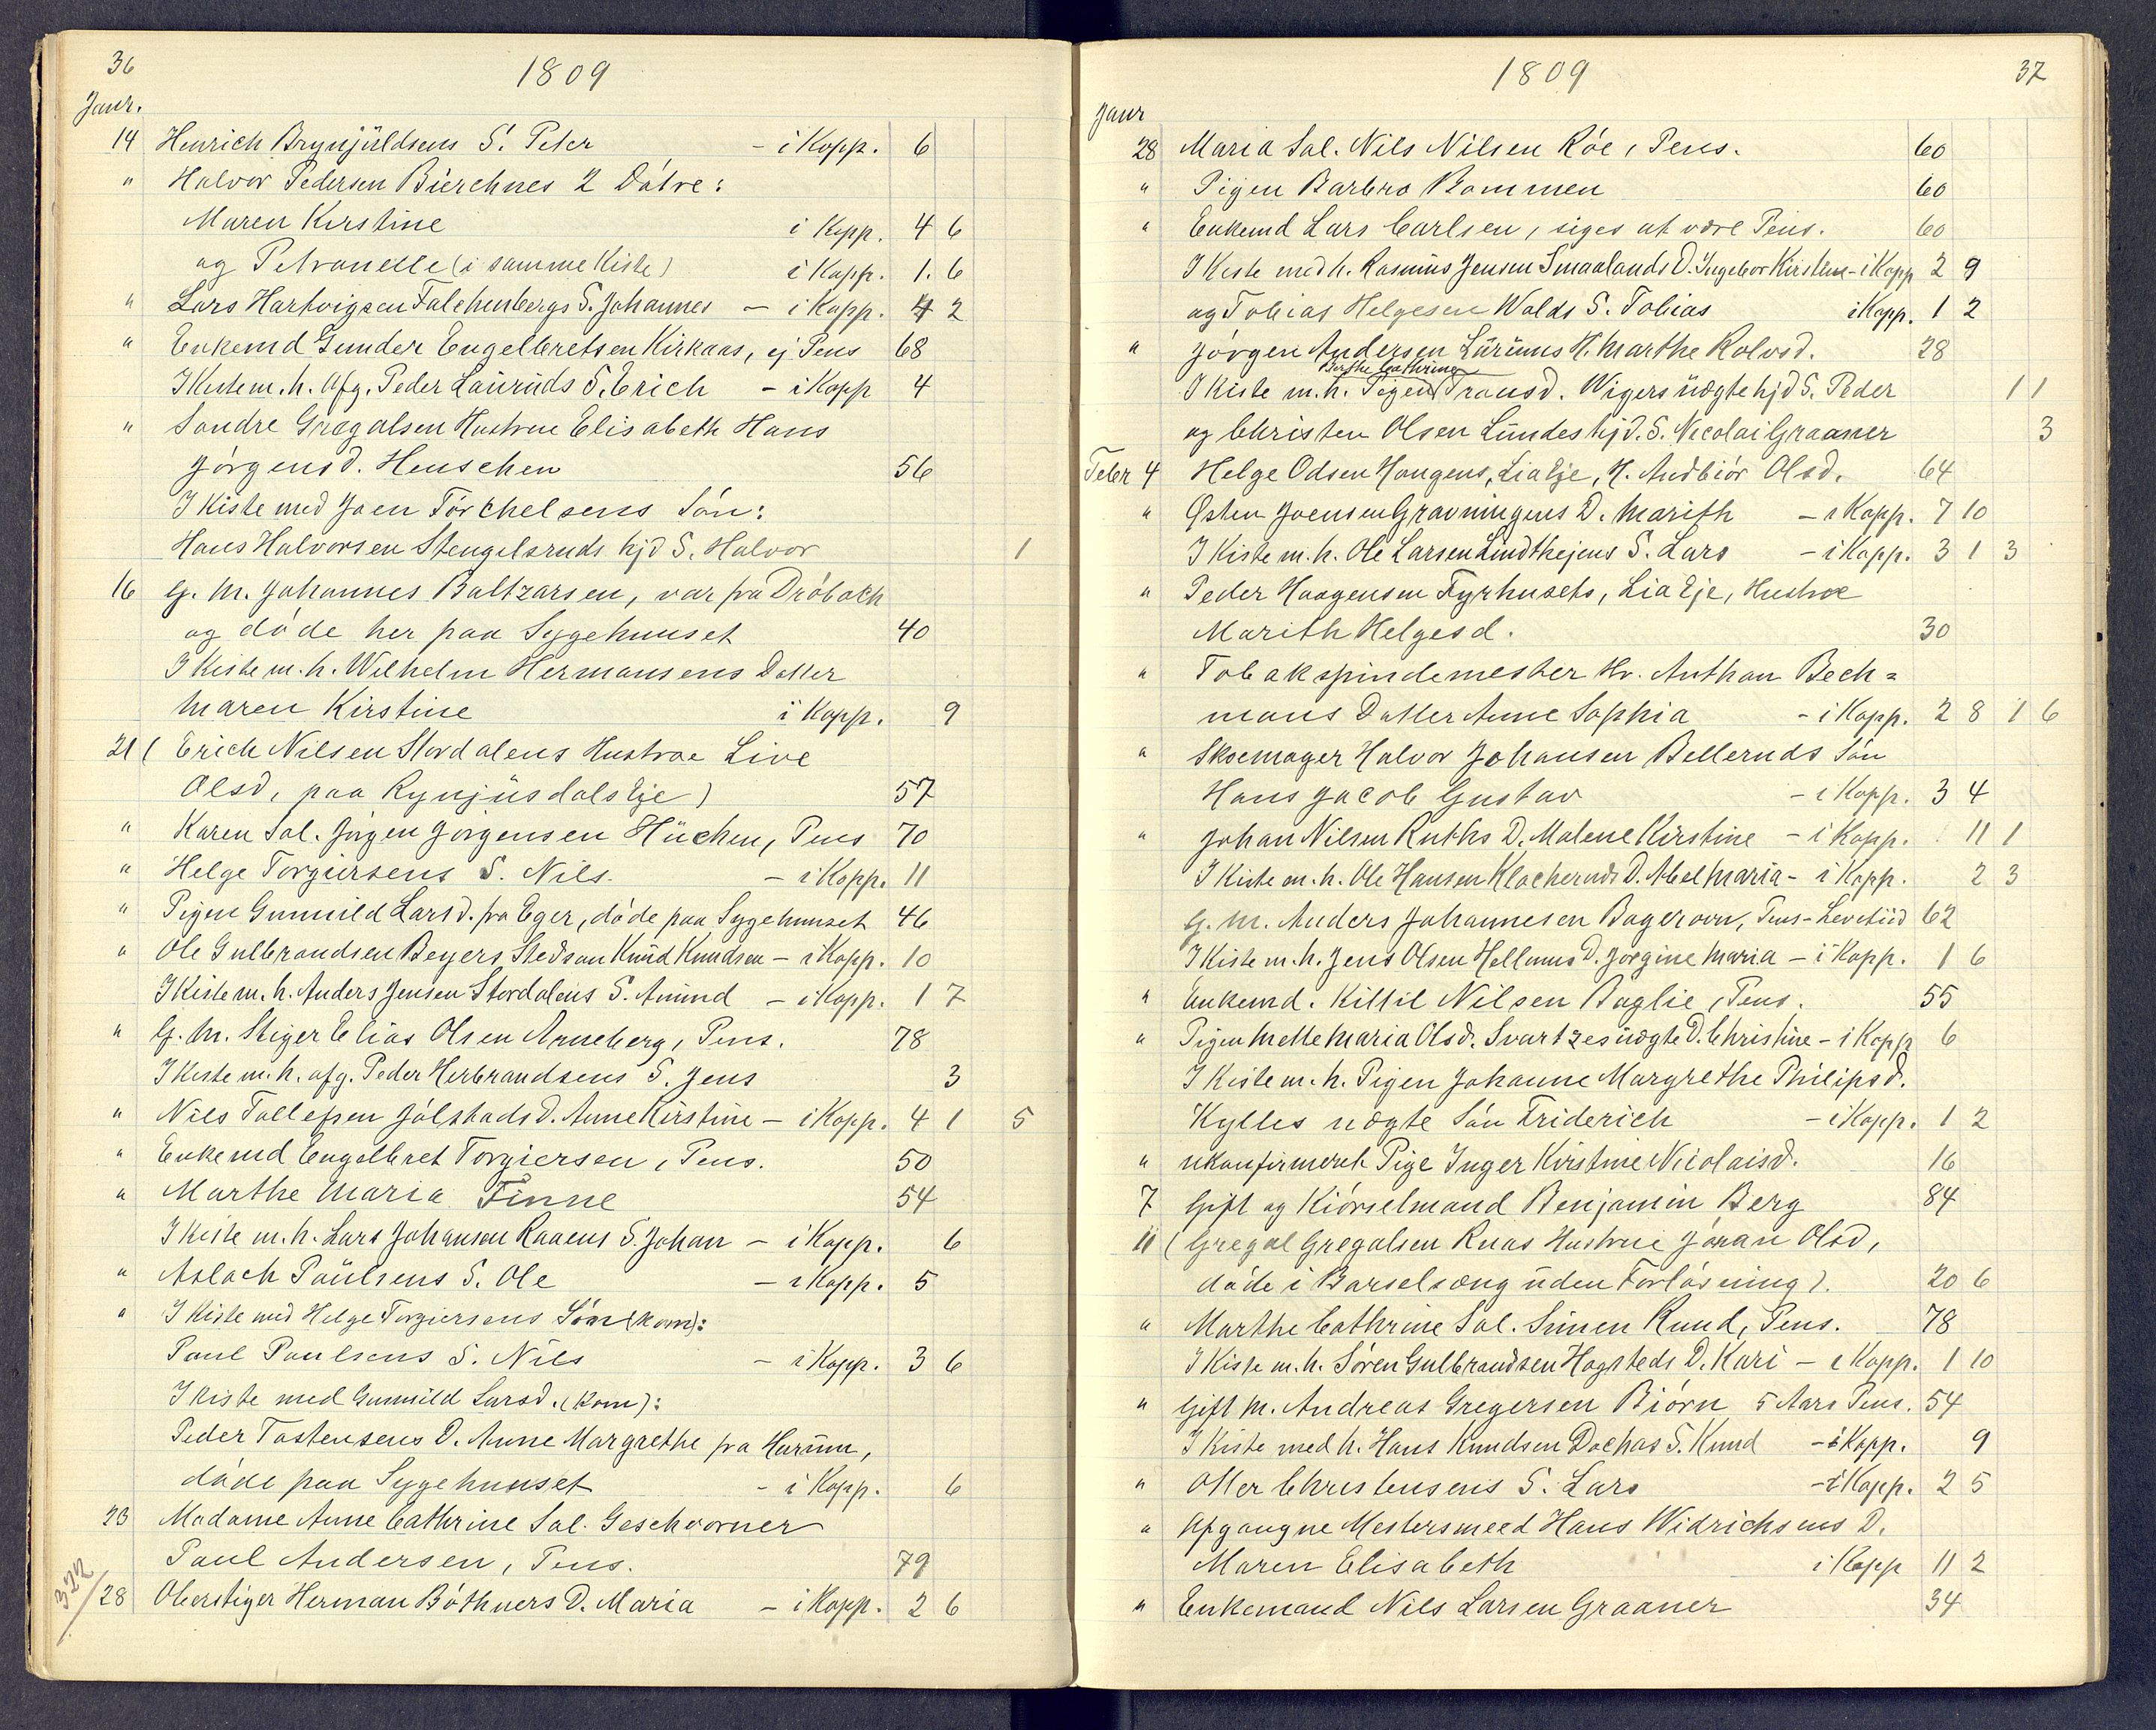 36
1809
Janr.
14 Henrich Brynjüldsens S. Peter - i Kopp. 6
" Halvor Pedersen Bierchnes 2 Dötre:
Maren Kirstine i Kopp. 4 6
og Petronelle (i samme Kiste) i Kopp. 1. 6
" Lars Hartvigsen Falchenbergs S. Johannes - i Kopp. 4 2
" Enkemd Gunder Engelbretsen Kirkaas, ej Pens 68
I Kiste m. h. Afg. Peder Lauruds S. Erich - i Kopp 4
" Sondre Gregalsen Hustrue Elisabeth Hans
Jörgensd. Henschen 56
I Kiste med Joen Törchelsens Sön:
Hans Halvorsen Stengelsruds hjd S. Halvor 1
16 G. M. Johannes Baltzarsen, var fra Dröbach
og döde her paa Sygehuuset 40
I Kiste m. h. Wilhelm Hermansens Datter
Maren Kirstine i Kopp. 9
21 (Erich Nilsen Stordalens Hustroe Live
Olsd, paa Rynjüsdals Eje) 57
" Karen Sal. Jörgen Jörgensen Hüchen, Pens 70
" Helge Torgiersens S. Nils. - i Kopp. 11
" Pigen Gunnild Larsd. fra Eger, döde paa Sygehuuset 46
" Ole Gulbrandsen Beyers Stedsøn Knud Knudsen - i Kopp. 10
I Kiste m. h. Anders Jensen Stordalens S. Amund - i Kopp. 1 7
" G. M. Stiger Elias Olsen Anneberg, Pens. 78
I Kiste m. h. afg. Peder Herbrandsens S. Jens 3
" Nils Tollefsen Jölstads D. Anne Kirstine - i Kopp. 4 1 5
" Enkemd Engelbret Torgiersen, Pens. 50
" Marthe Maria Finne 54
I Kiste m. h. Lars Johansen Raaens S. Johan - i Kopp. 6
" Aslach Paulsens S. Ole - i Kopp. 5
" I Kiste med Helge Torgiersens Sön (kom):
Paul Paulsens S. Nils - i Kopp. 3 6
I Kiste med Gunnild Larsd. (kom):
Peder Tostensens D. Anne Margrethe fra Harum,
döde paa Sygehuuset - i Kopp. 6
23 Madame Anne Cathrine Sal. Geschvorner
Paul Andersen, Pens. 79
322/
28 Oberstiger Herman Böthners D. Maria - i Kopp. 2 6
1809
37
Janr
28 Maria Sal. Nils Nilsen Röe, Pens. 60
" Pigen Barbro Bommen 60
" Enkemd Lars Carlsen, siges at være Pens. 60
I Kiste med h. Rasmus Jensen Smaalands D. Ingebor Kirstine - i Kopp 2 9
og Tobias Helgesen Walds S. Tobias i Kopp. 1 2
" Jörgen Andersen Lürüms H. Marthe Rolvsd. 28
Birthe Cathrine
I Kiste m. h. Pigen Transd. Wigers uægte hjd S. Peder 11
og Christen Olsen Lundes hjd. S. Nicolai Graaner 3
Febr 4 Helge Odsen Haugens, Lia Eje, H. Andbiör Olsd. 64
" Østen Joensen Gravningens D. Marith - i Kopp. 7 10
I Kiste m. h. Ole Larsen Lindthejens S. Lars - i Kopp. 3 1 3
" Peder Haagensen Fyrhusets, Lia Eje, Hustroe
Marith Helgesd. 30
" Tobakspindemester Hr. Anthon Bech=
mans Datter Anne Sophia - i Kopp. 2 8 1 6
" Skoemager Halvor Johansen Belleruds Sön
Hans Jacob Gustav - i Kopp. 3 4
" Johan Nilsen Ruths D. Malene Kirstine - i Kopp. 11 1
I Kiste m. h. Ole Hansen Klocheruds D. Abel Maria - i Kopp. 2 3
G. M. Anders Johannesen Bagerovn, Pens - Levetiid 62
I Kiste m. h. Jens Olsen Hellmus D. Jorgine Maria - i Kopp. 1 6
" Enkemd. Kittil Nilsen Baglie, Pens. 55
" Pigen Mette Maria Olsd. Svartzes uægte D. Christine - i Kopp 6
I Kiste m. h. Pigen Johanne Margrethe Philipsd.
Kylles uægte Sön Friderich - i Kopp. 1 2
" ukonfirmeret Pige Inger Kirstine Nicolaisd. 16
7 Gift og Kiörselmand Benjamin Berg 84
11 (Gregal Gregalsen Ruas Hustrue Jöran Olsd,
döde i Barselsæng uden Forlösning). 20 6
" Marthe Cathrine Sal. Simen Ruud, Pens. 78
I Kiste m. h. Sören Gulbrandsen Hagsteds D. Kari - i Kopp. 1 10
" Gift M. Andreas Gregersen Biörn 5 Aars Pens. 54
I Kiste med h. Hans Knudsen Dochas S. Knud - i Kopp. 9
" Otter Christensens S. Lars - i Kopp. 2 5
" Afgangne Mestersmed Hans Widrichsens D.
Maren Elisabeth i Kopp 11 2
" Enkemand Nils Larsen Graaner 34